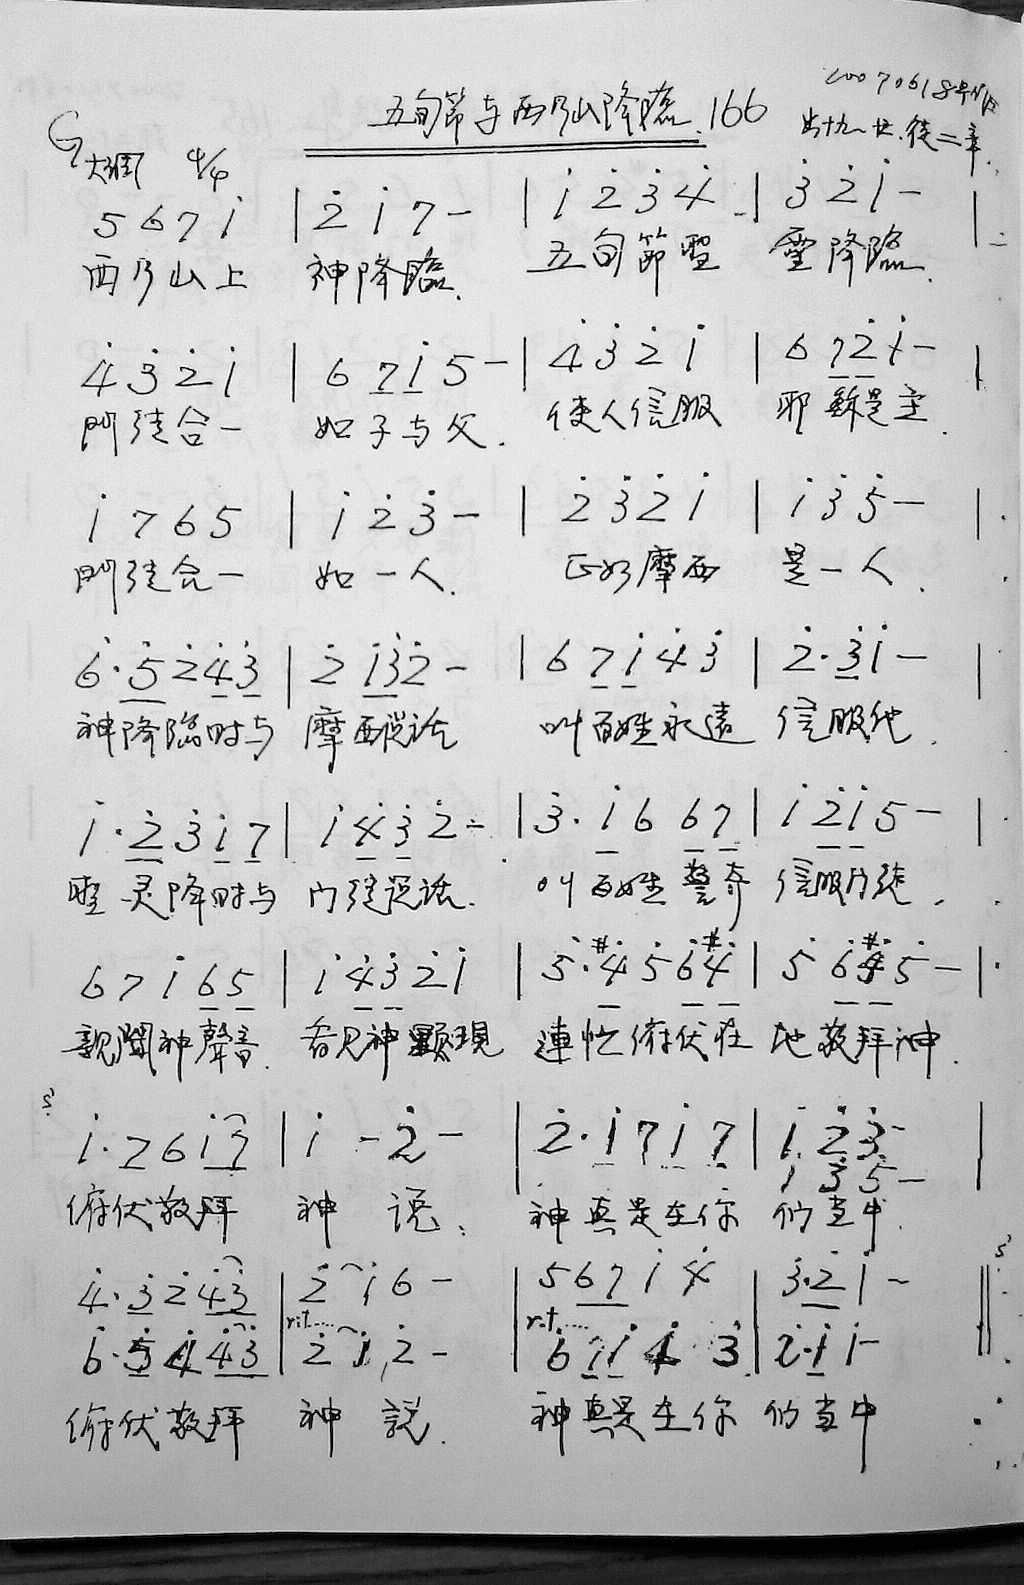 20070618
五旬節与西乃山降臨. 166
出十九-廿.徒二章.
G大調 4/4
5 6 7 i̇ | 2̇ i̇ 7 – | i̇ 2̇ 3̇ 4̇ | 3̇ 2̇ i̇ – |
西乃山上 神降臨. 五旬節聖 靈降臨.
4̇ 3̇ 2̇ i̇ | 6 7 i̇ 5 – | 4̇ 3̇ 2̇ i̇ | 6 7 2̇ i̇ – |
門徒合一 如子与父. 使人信服 耶穌是主.
i̇ 7 6 5 | i̇ 2̇ 3̇ – | 2̇ 3̇ 2̇ i̇ | i̇ 3̇ 5̇ – |
門徒合一 如一人. 正如摩西 是一人.
6̇ · 5̇ 2̇ 4̇ 3̇ | 2̇ i̇ 3̇ 2̇ – | 6 7 i̇ 4̇ 3̇ | 2̇ · 3̇ i̇ – |
神降臨时与 摩西說话 叫百姓永遠 信服他.
i̇ · 2̇ 3̇ i̇ 7 | i̇ 4̇ 3̇ 2̇ – | 3̇ · i̇ 6 6 7 | i̇ 2̇ i̇ 5 – |
聖灵降时与 门徒說话. 叫百姓驚奇 信服门徒.
6 7 i̇ 6 5 | i̇ 4̇ 3̇ 2̇ i̇ | 5̇ · #4̇ 5̇ 6̇ #4̇ | 5̇ 6̇ #4̇ 5̇ – |
親聞神聲音 看见神顯現 連忙俯伏在 地敬拜神.
i̇ · 7 6 i̇ 7 | i̇ – 2̇ – | 2̇ · i̇ 7 i̇ 7 | i̇ 2̇ 3̇ –
i̇ 3̇ 5̇ – |
俯伏敬拜 神 说. 神真是在你 们当中.
4̇ · 3̇ 2̇ 4̇ 3̇ | 2̇ i̇ 6 – | 5 6 7 i̇ 4̇ | 3̇ · 2̇ i̇ – ‖
rit.... rit....
6̇ · 5̇ 4̇ 4̇ 3̇ | 2̇ i̇ 2̇ – | 6 i̇ i̇ i̇ 3̇ | 2̇ · i̇ i̇ – ‖
俯伏敬拜 神 説. 神真是在你 们当中